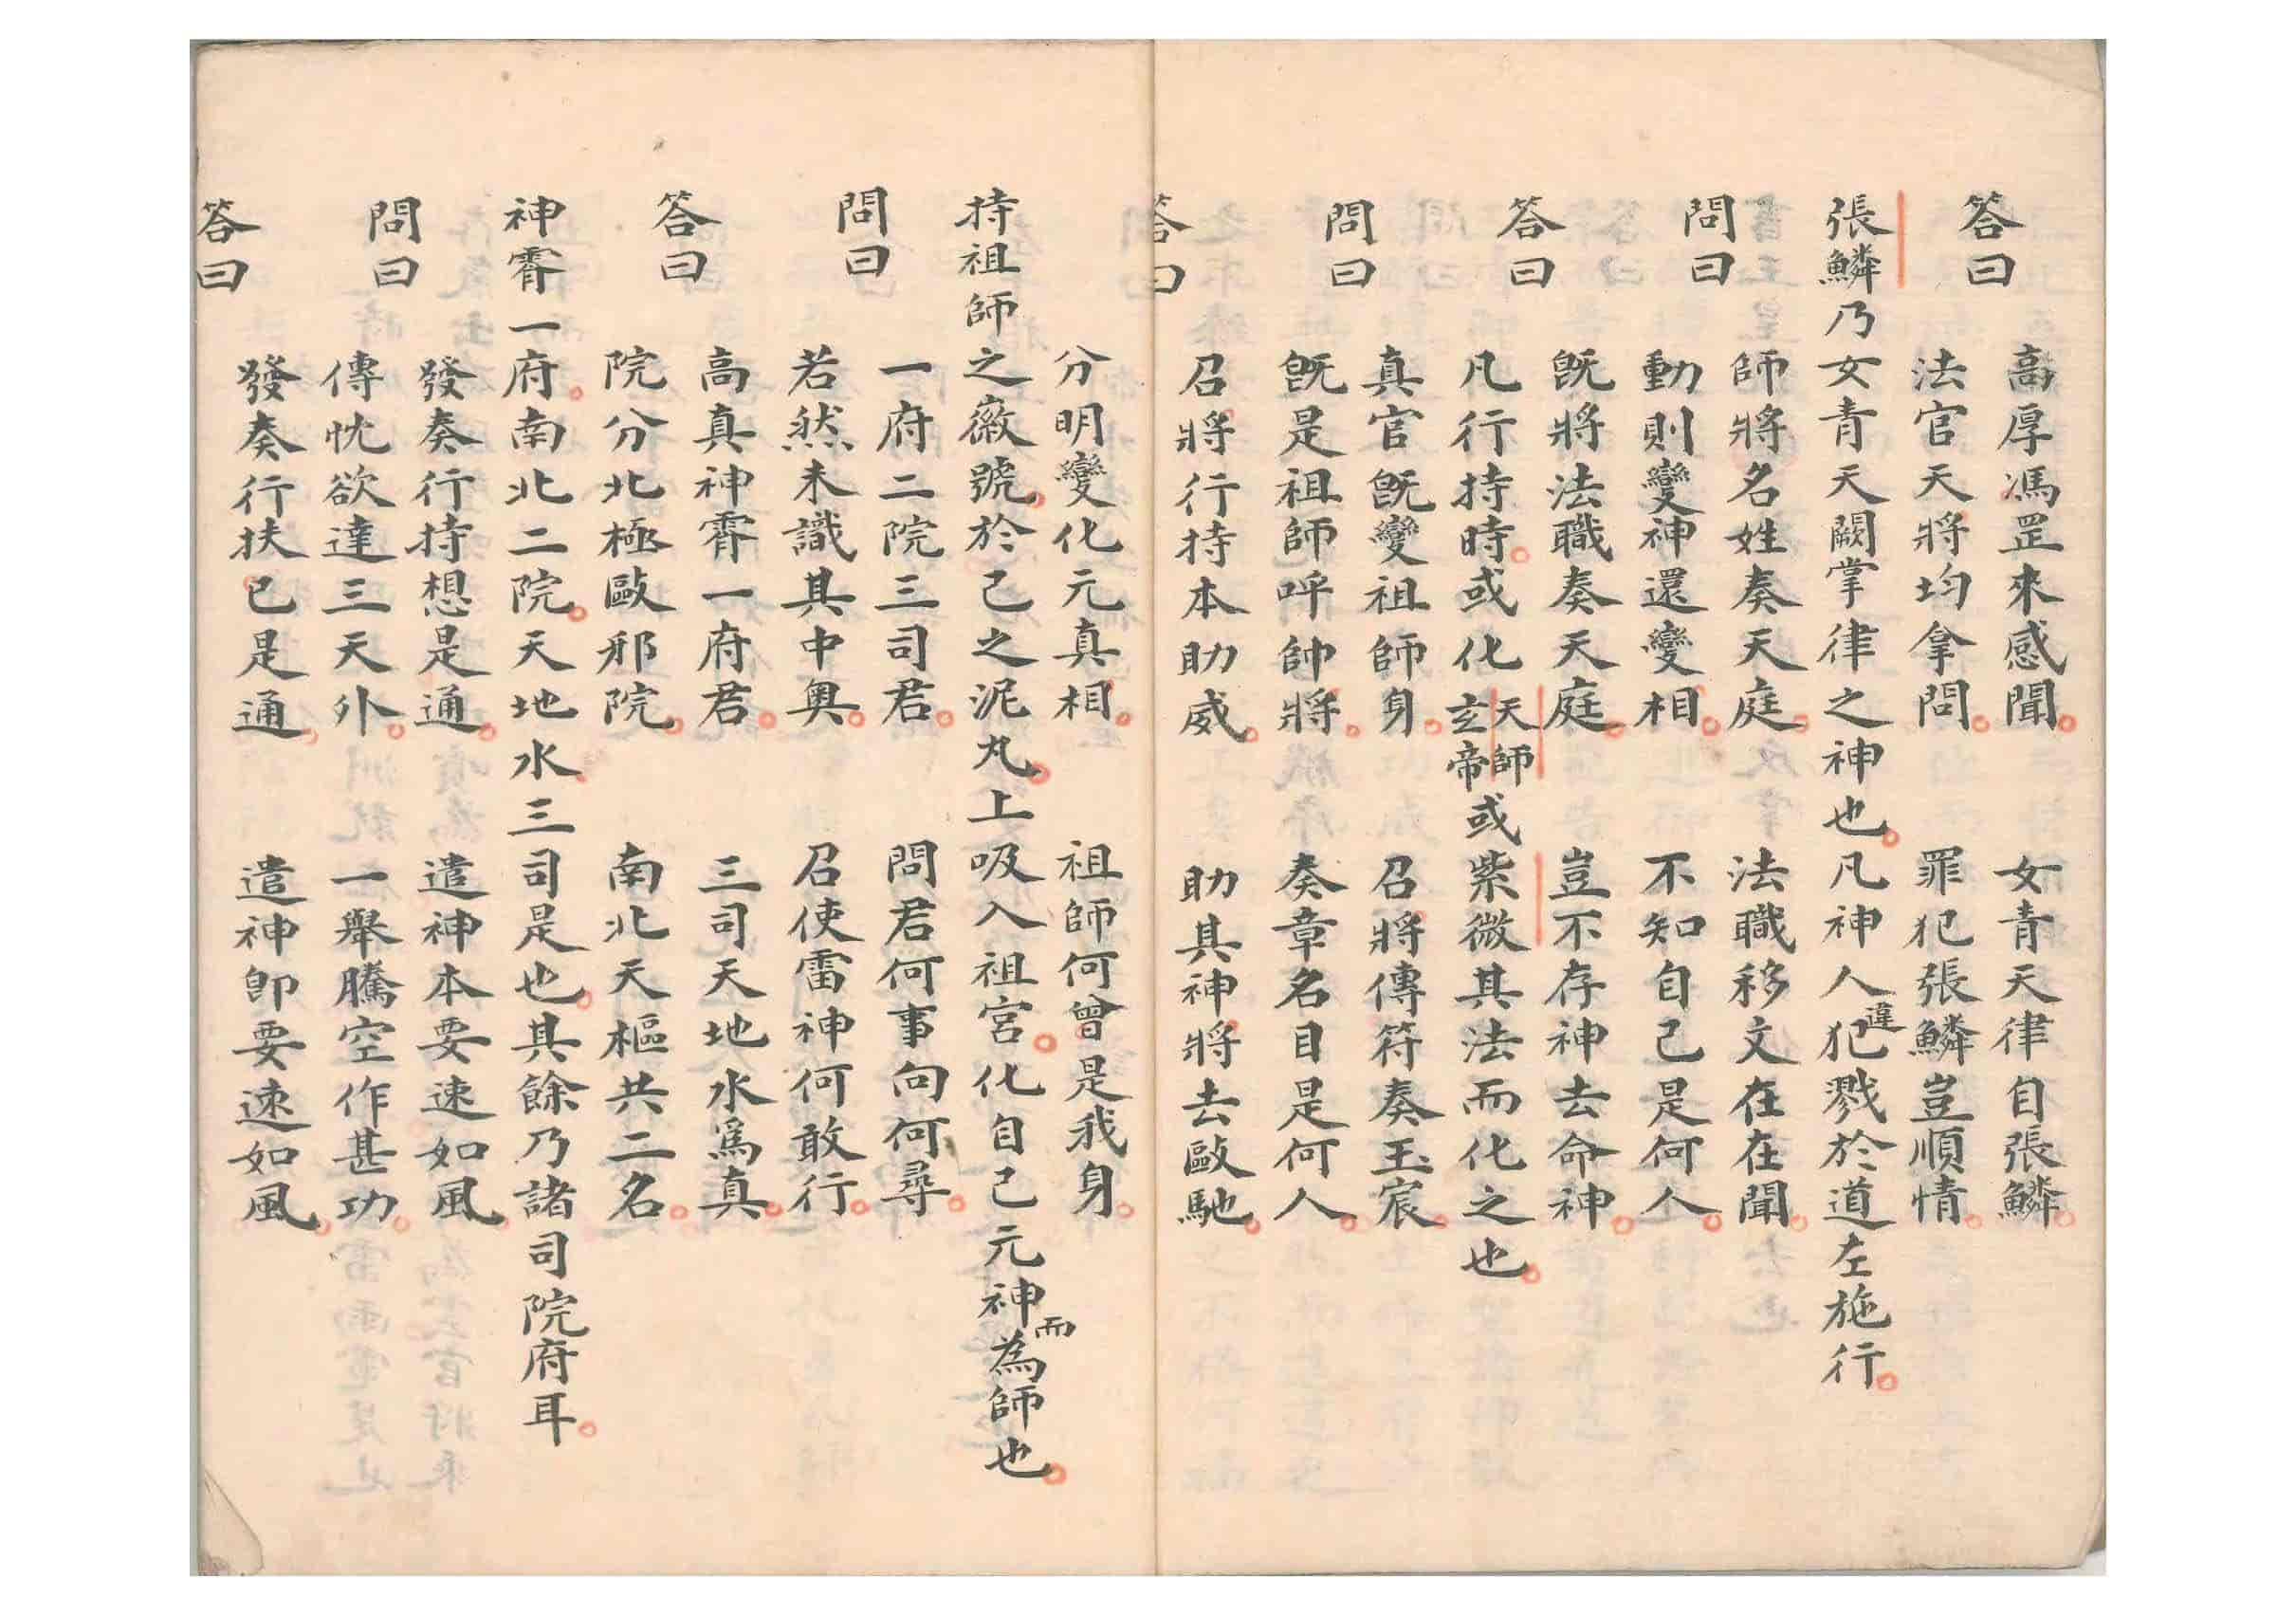 答曰
高厚馮罡來感聞。女青天律自張鱗。
法官天將均拿問。罪犯張鱗豈順情。
張鱗乃女青天闕掌律之神也。凡神人違犯戮於道左施行。
師將名姓奏天庭。法職移文在在聞。
問曰
動則變神還變相。不知自己是何人。
既將法職奏天庭。豈不存神去命神。
答曰
凡行持時。或化天師玄帝或紫微其法而化之也。
真官既變祖師身。召將傳符奏玉宸。
問曰
既是祖師呼帥將。奏章名目是何人。
答曰
召將行持本助威。助其神將去歐馳。
分明變化元真相。祖師何曾是我身。
持祖師之徽號。於己之泥丸。上吸入祖宮。化自己元神而為師也。
一府二院三司君。問君何事向何尋。
問曰
若然未識其中奧。召使雷神何敢行。
高真神霄一府君。三司天地水為真。
答曰
院分北極歐邪院。南北天樞共二名。
神霄一府。南北二院。天地水三司是也。其餘乃諸司院府耳。
發奏行持想是通。遣神本要速如風。
問曰
傳忱欲達三天外。一舉騰空作甚功。
發奏行扶已是通。遣神即要速如風。
答曰